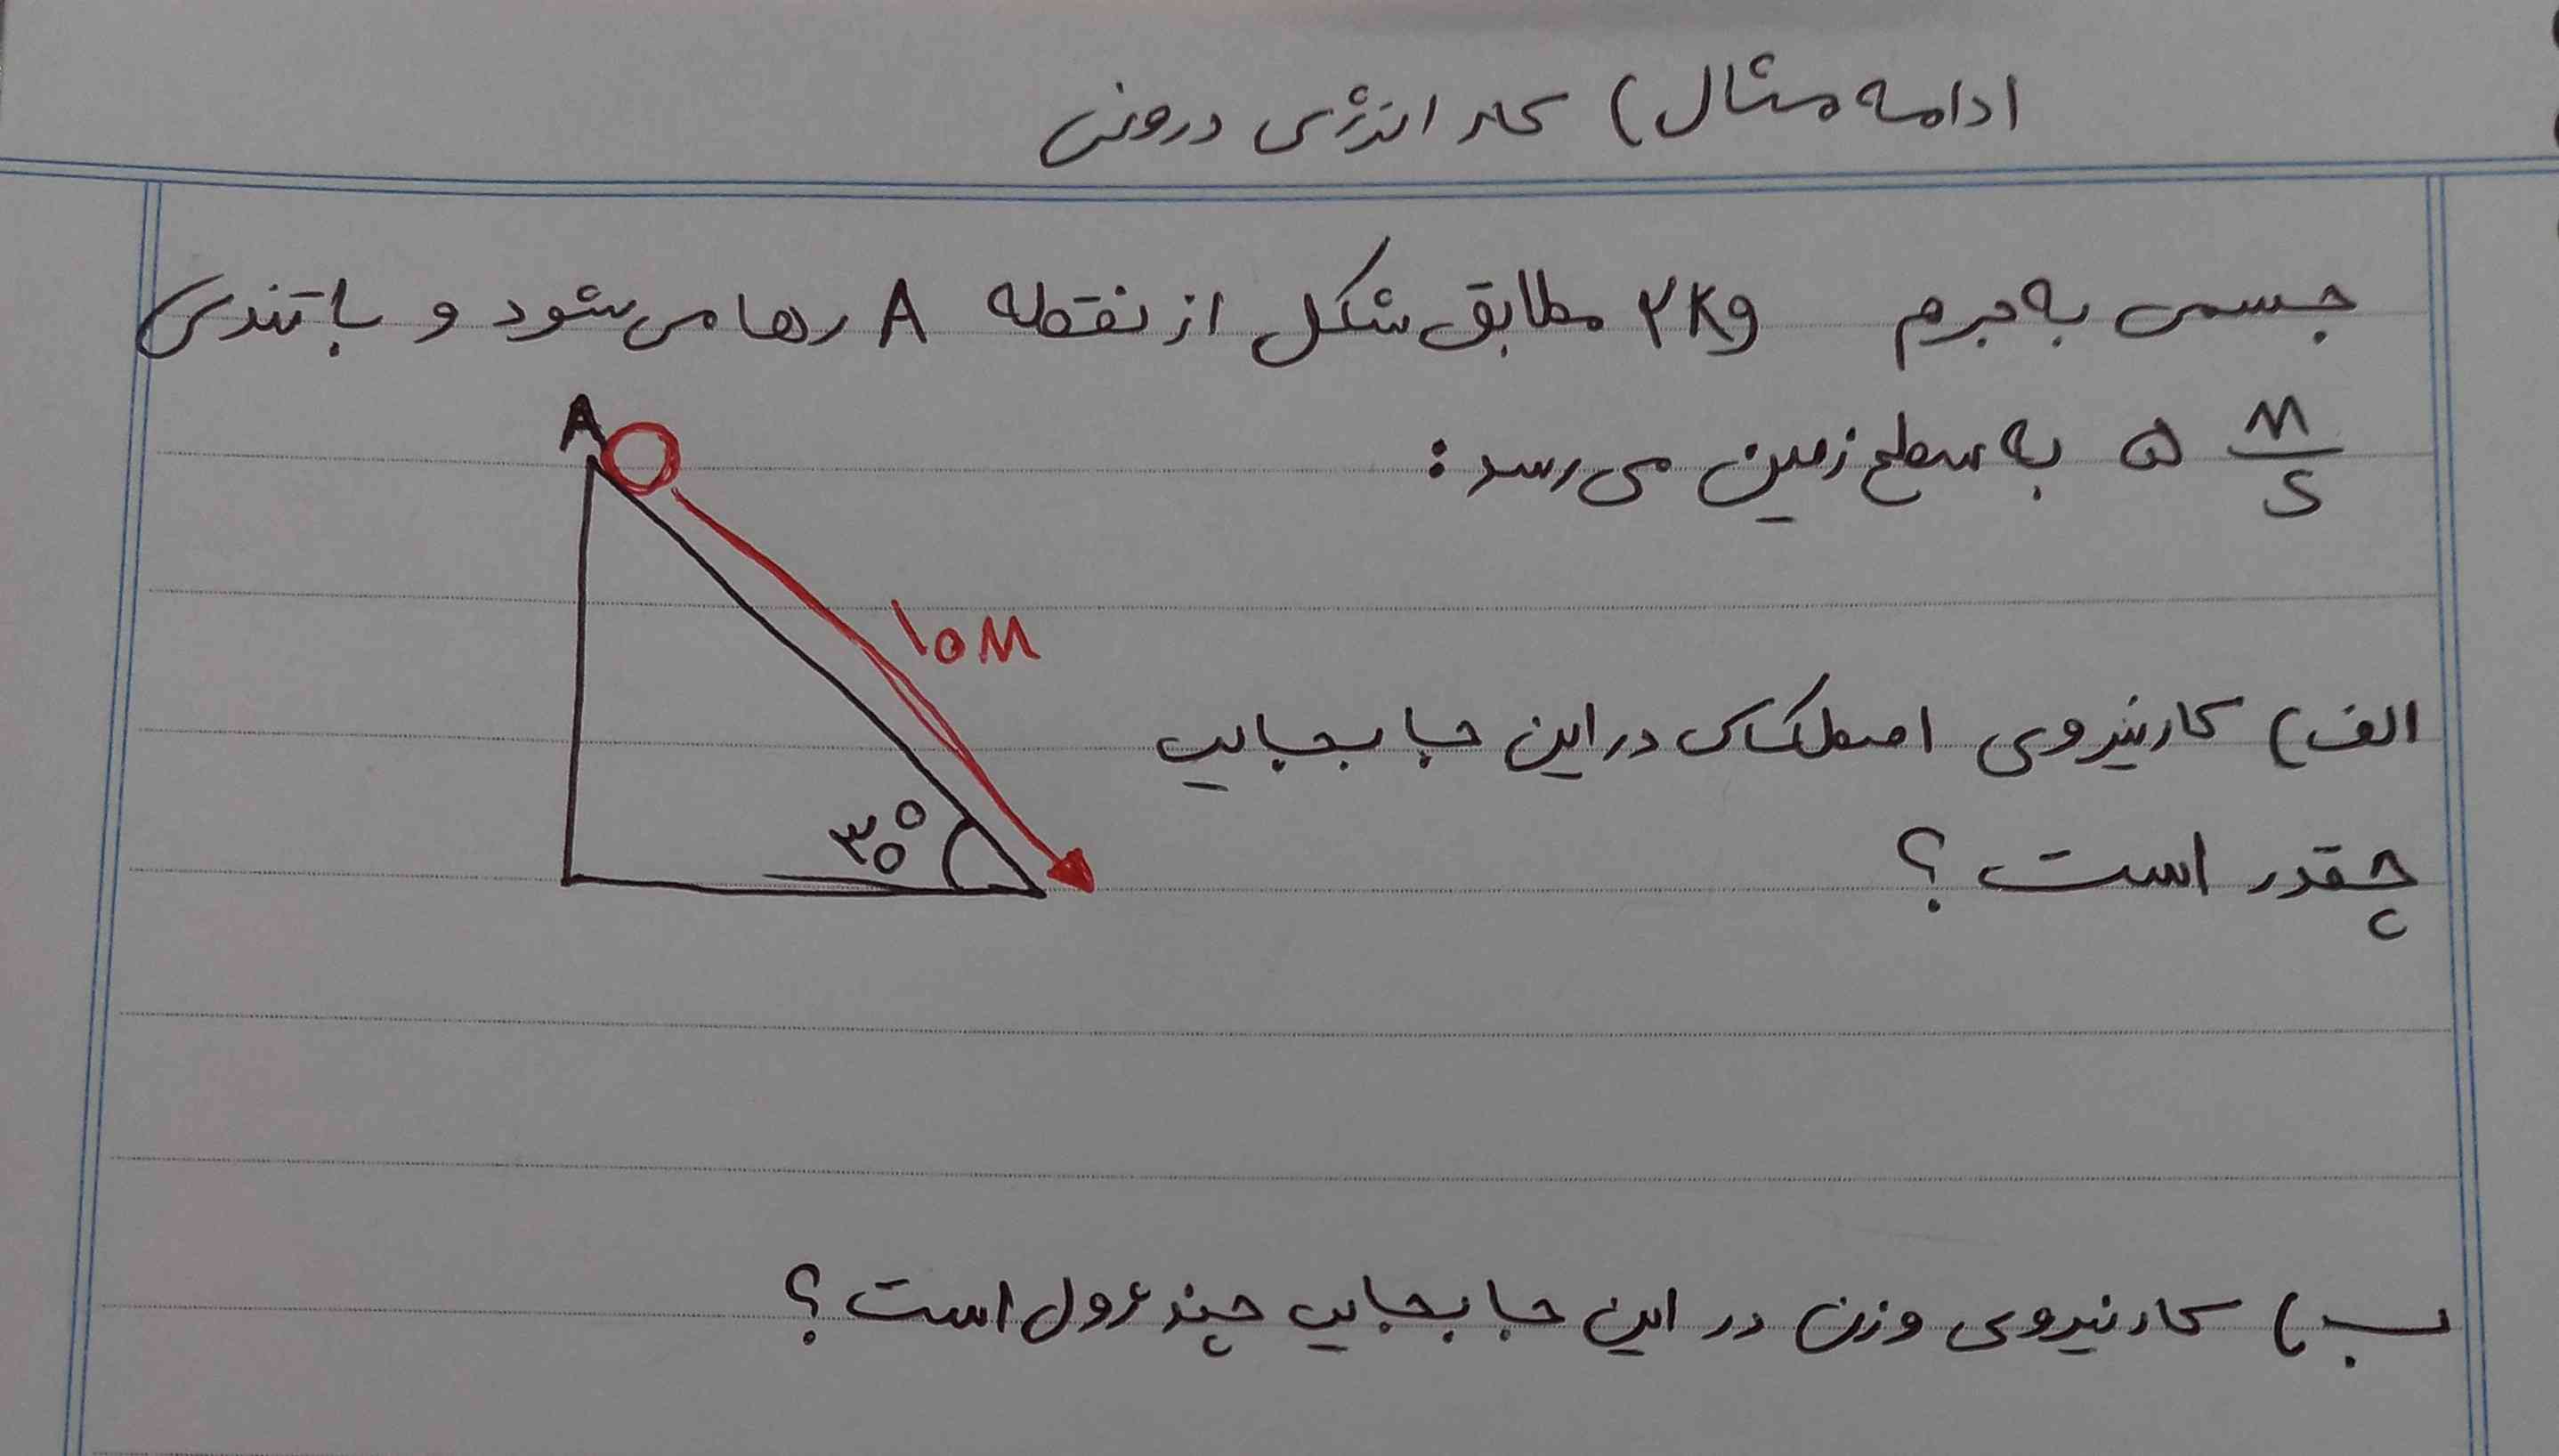 ادامه مثال) کار انرژی درونی
جسمی به جرم ۲Kg مطابق شکل از نقطه A رها می‌شود و با تندی
۵ m/s به سطح زمین می‌رسد:
A
۱۰m
الف) کار نیروی اصطکاک در این جابجایی
۳۰°
چقدر است؟
ب) کار نیروی وزن در این جابجایی چند ژول است؟